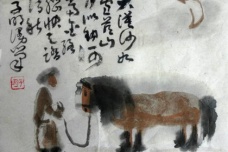 大漠沙如
雪燕山
月似钩何
当金络
脑快走踏
清秋